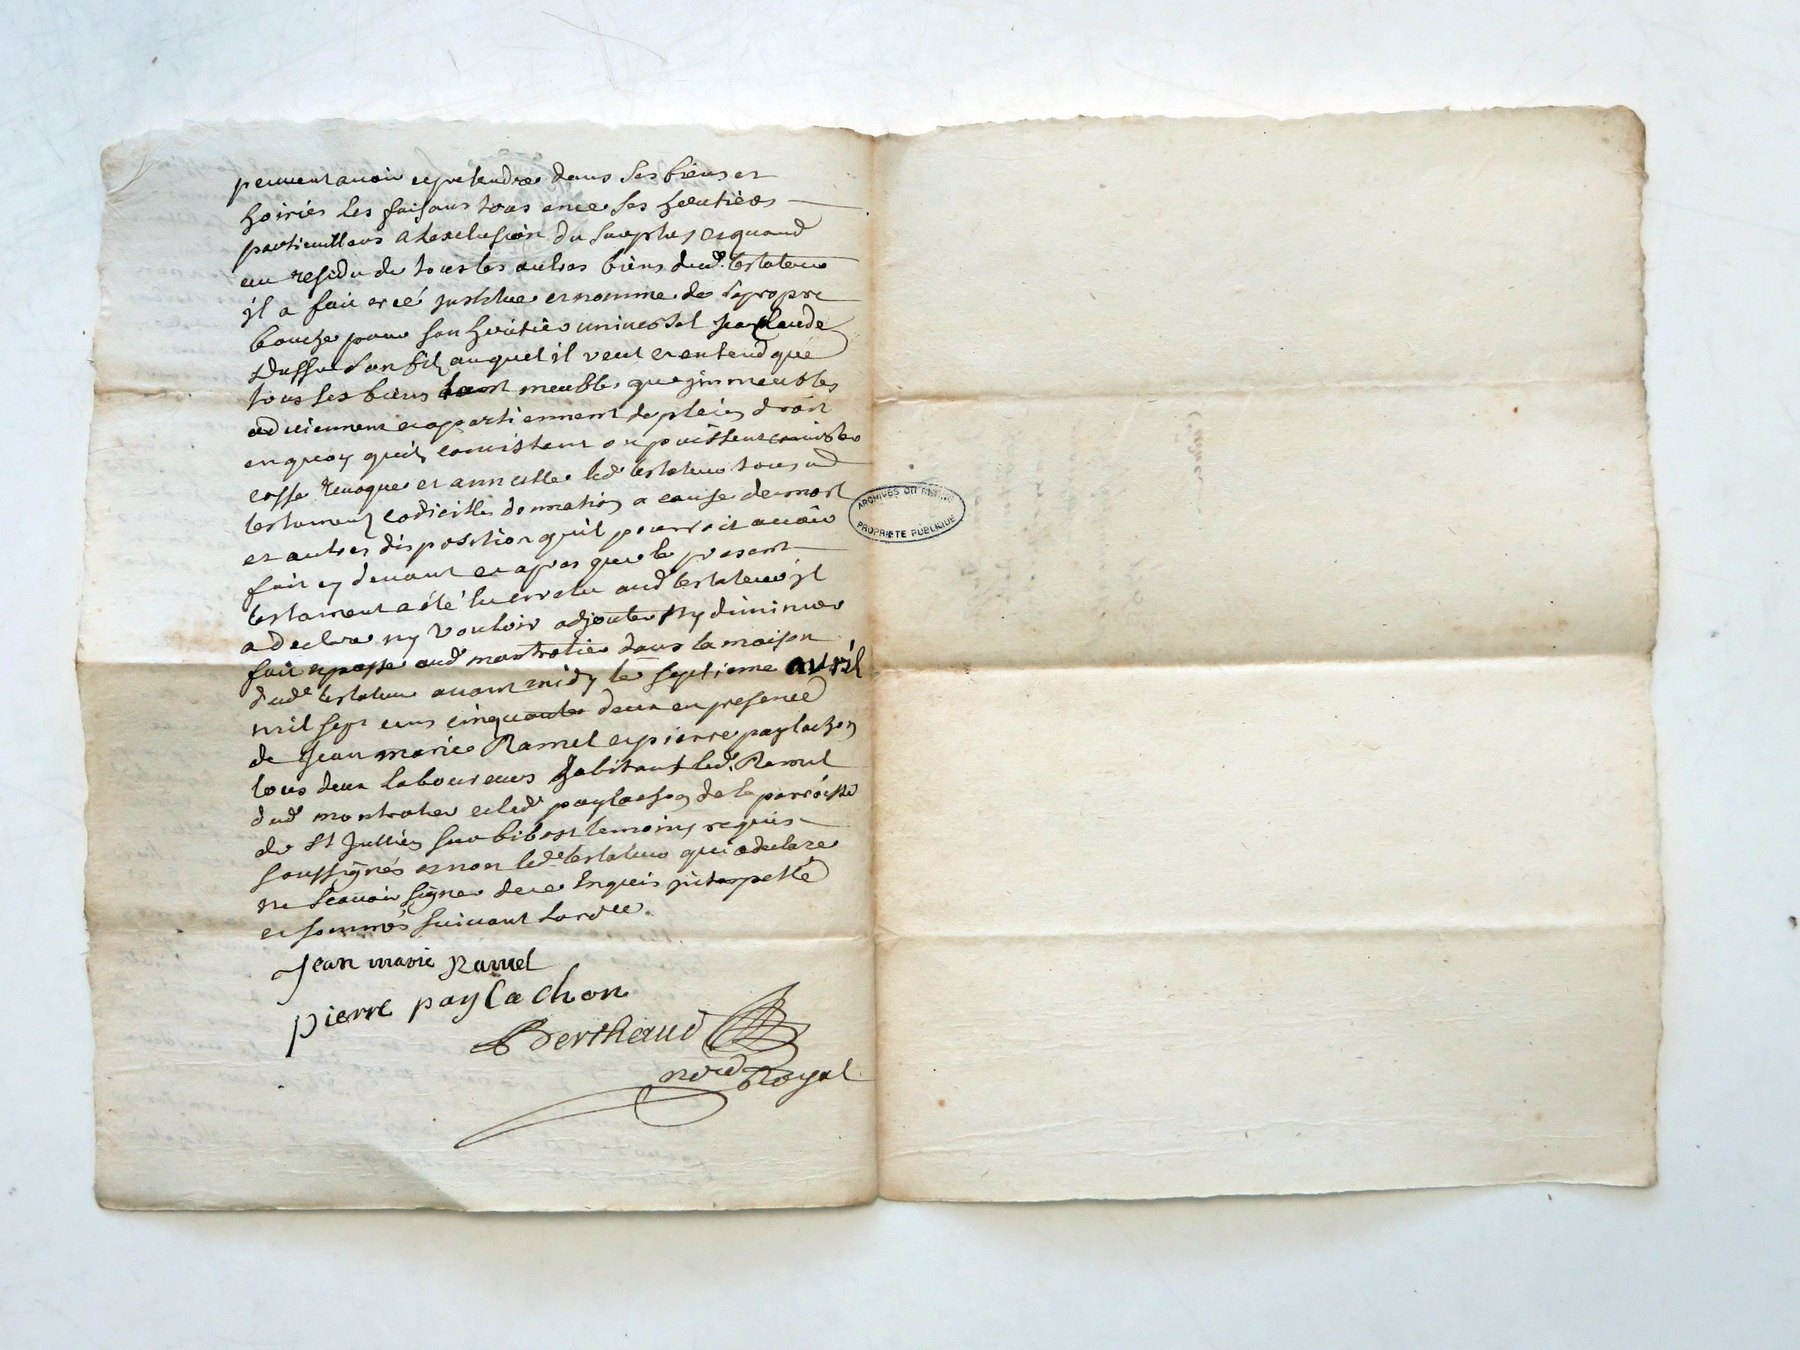 peuvent avoir et pretendre dans ses biens et
hoiries les faisans tous area ses heritiers
particulliers a lexclusion du surplus et quand
au residu de tous les autres biens dud. testateur
il a fait creé jnstitue et nomme de sa propre
bouche pour son heritier universel jean claude
son fils auquel il veut et entend que
tous ses biens tant meubles que jmmeubles
adviennent et appartiennent de plein droit
en quoy quils consistent ou puissent consister
casse revoque et annulle led testateur tous
testament codicilles donnation a cause de mort
et autres disposition quil pourroit avoir
fait cy devant et apres que le present
testament a été lu et relu aud testateur jl
a declare ny vouloir adjouter ny diminuer
fait et passe aud montrotier dans la maison
dud testateur avant midy le septieme avril
mil sept cens cinquante deux en presence
de Jean marie Ramel et pierre paylachon
tous deux laboureurs habitant led. Ramel
dud montrotier et led paylachon de la parroisse
de St Jullien sur bibost temoins requis
soussignés et non led. testateur qui a declare
ne scavoir signer de ce enquis jnterpellé
et sommés suivant lord.ce
Jean marie Ramel
pierre paylachon
Berthaud
Royal
ARCHIVES DU RHÔNE
PROPRIÉTÉ PUBLIQUE